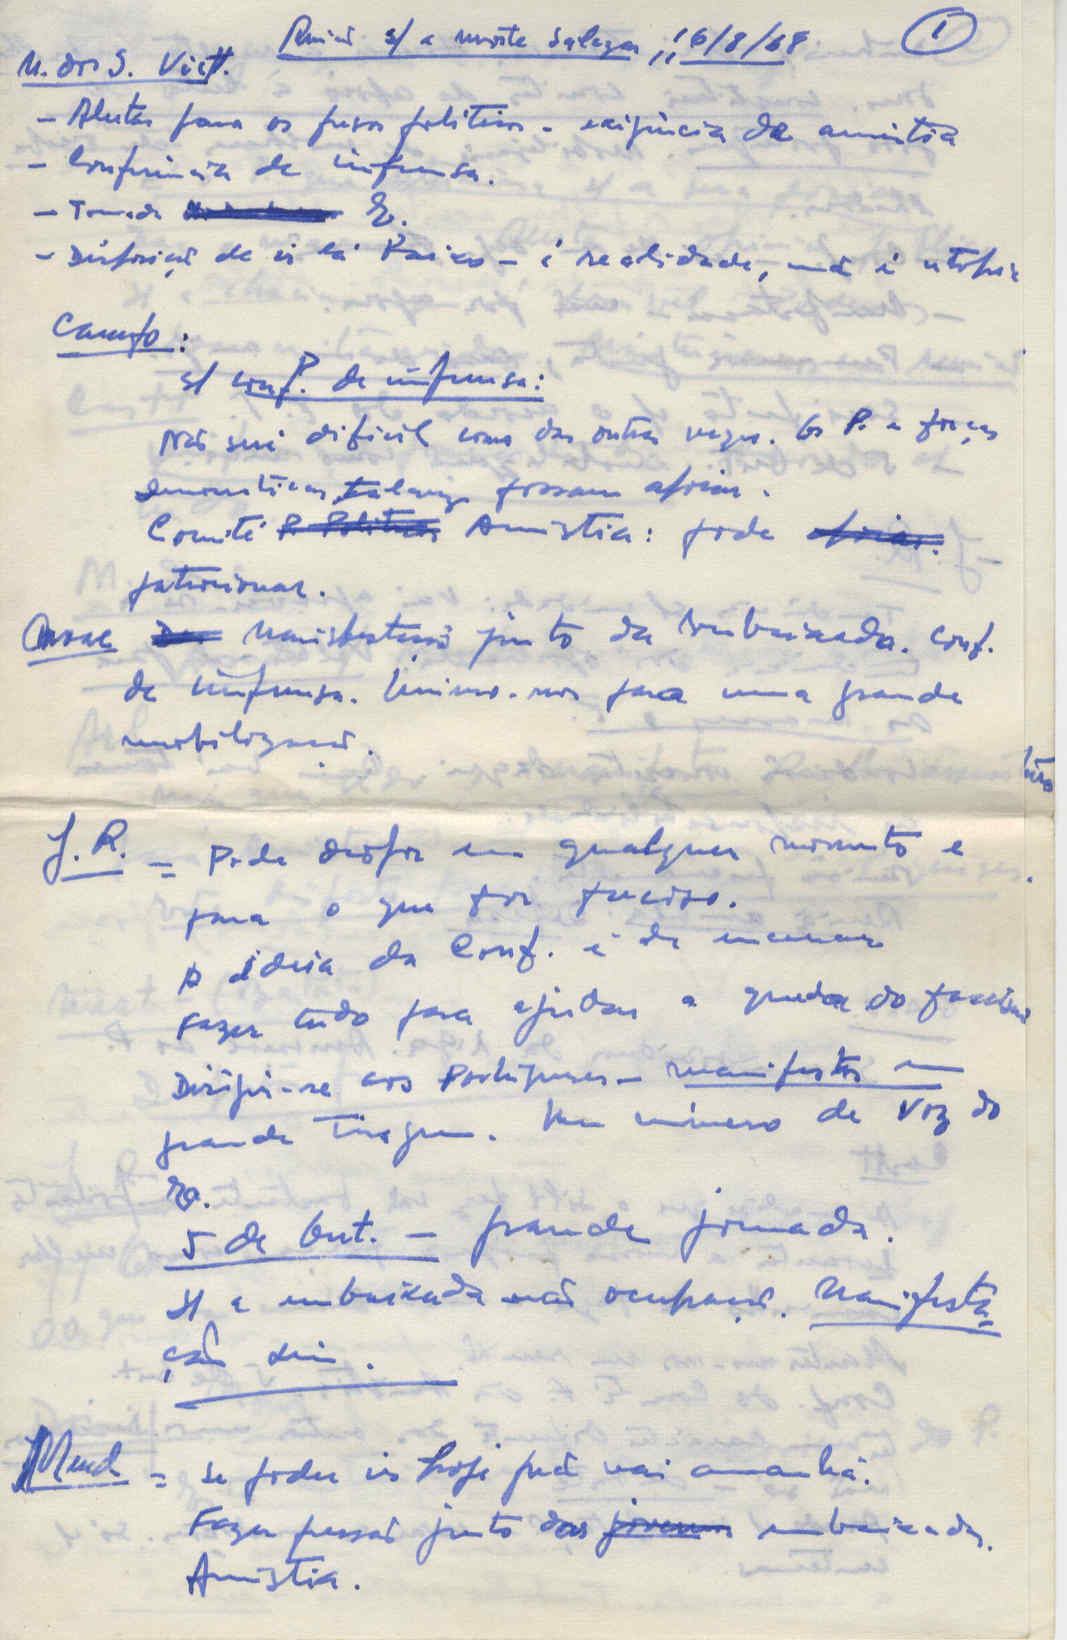 Reunião s/ a morte Salazar, 16/8/68
1
M. dos S. Vict.
- Alertar para os presos políticos - exigência da amnistia
- Conferência de imprensa.
- Tomada
- Disposição de ir lá baixo - é realidade, não é utopia
Campo:
s/ conf. de imprensa:
Não será difícil como das outras vezes. Os P. e forças
democráticas talvez possam apoiar.
Comité P. Políticos Amnistia: pode apoiar.
patrocinar.
Manifestação junto da embaixada. Conf.
de imprensa. Unirmo-nos para uma grande
mobilização.
J. R. - Pode dispor em qualquer momento e
para o que for preciso.
A ideia da Conf. é de
Fazer tudo para ajudar a queda do fascismo
Dirigir-se aos Portugueses - manifestos em
grande tiragem. Um número de Voz do
5 de Out. - grande jornada.
s/ a embaixada não ocupação. Manifesta-
ção sim.
Mend - se poder ir hoje não vai amanhã.
Fazer pressão junto das jovens embaixadas.
Amnistia.